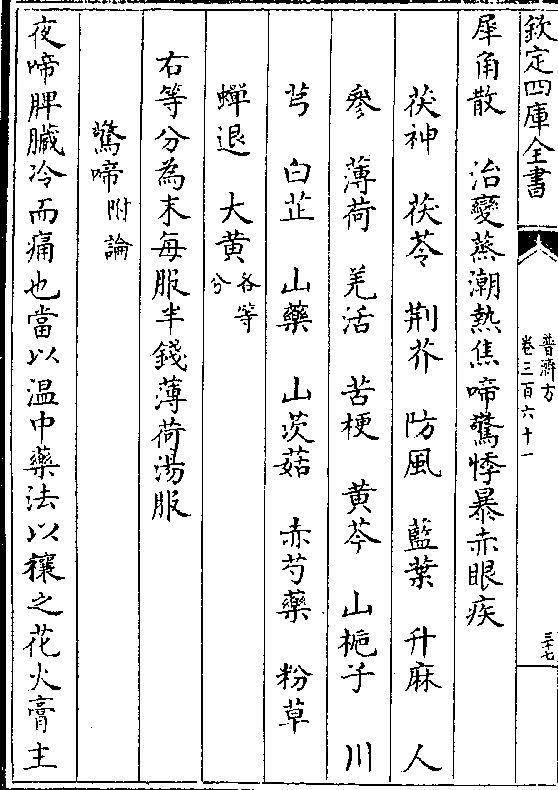 欽定四庫全書
普濟方
卷三百六十一
三十七
犀角散　治變蒸潮熱焦啼驚悸暴赤眼疾
茯神　茯苓　荆芥　防風　藍葉　升麻　人
參　薄荷　羌活　苦梗　黄芩　山梔子　川
芎　白芷　山藥　山茨菇　赤芍藥　粉草
蟬退　大黄各等分
右等分為末每服半錢薄荷湯服
驚啼附論
夜啼脾臟冷而痛也當以温中藥法以穰之花火膏主